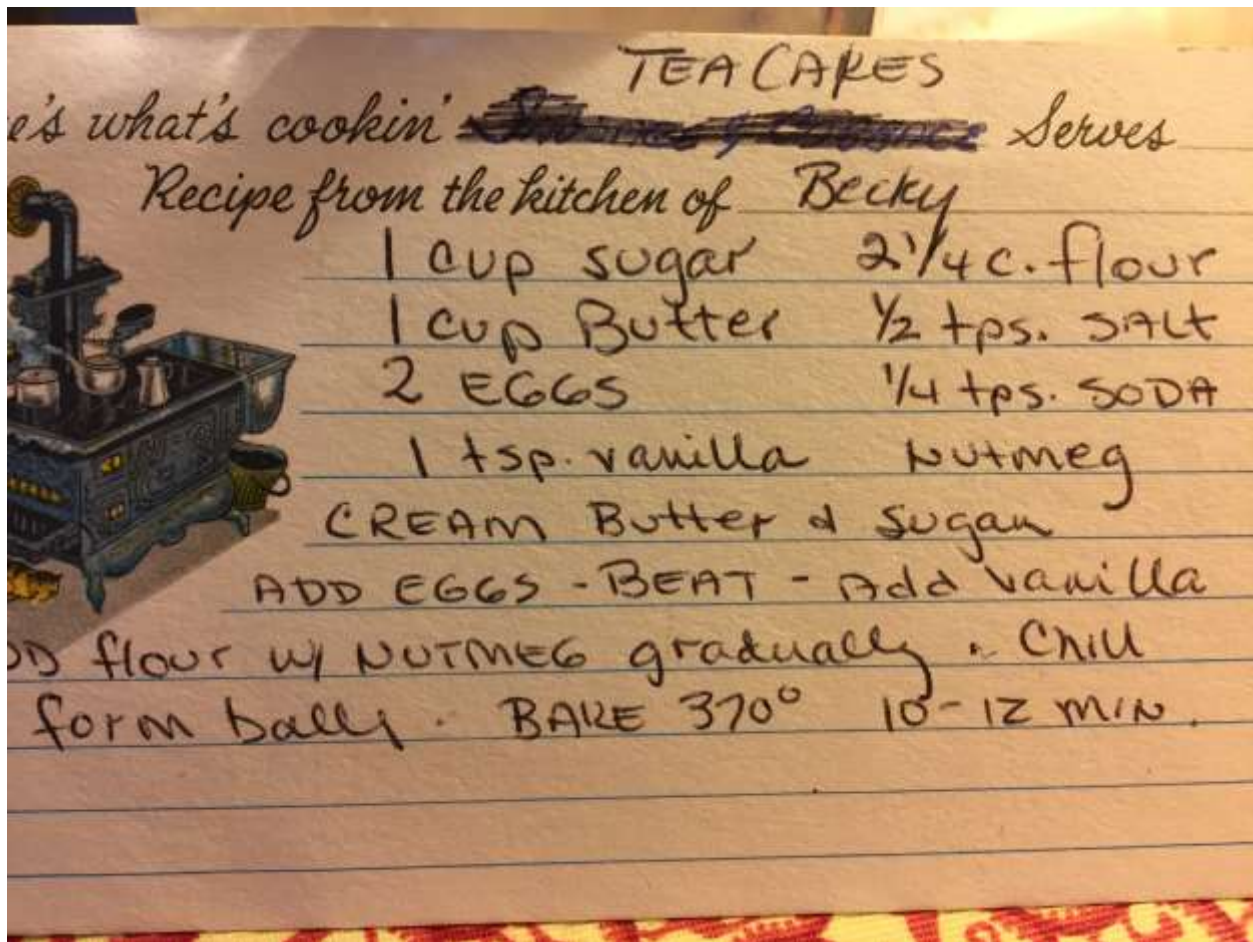 TEA CAKES
e's what's cookin' Serves
Recipe from the kitchen of Becky
1 cup sugar 2 1/4 c. flour
1 cup Butter 1/2 tps. SALT
2 EGGS 1/4 tps. SODA
1 tsp. vanilla Nutmeg
CREAM Butter & Sugar
ADD EGGS - BEAT - Add vanilla
DD flour w/ NUTMEG gradually. Chill
form balls. BAKE 370° 10-12 MIN.